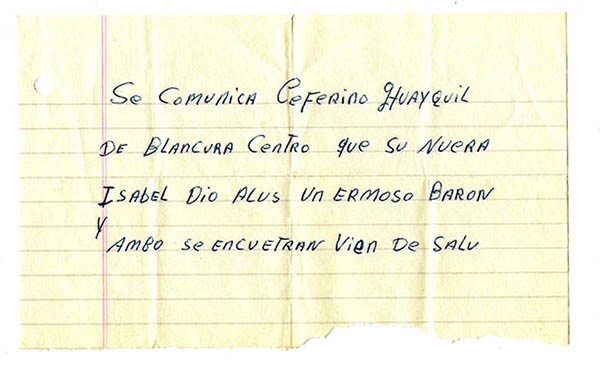 Se COMUNICA CeFeRINO HUAYQUIL
DE BLANCURA CeNTRO que SU NUERA
ISABEL DIO ALUS UN ERMOSO BARON
Y AMBO Se ENCUETRAN VieN De SALU